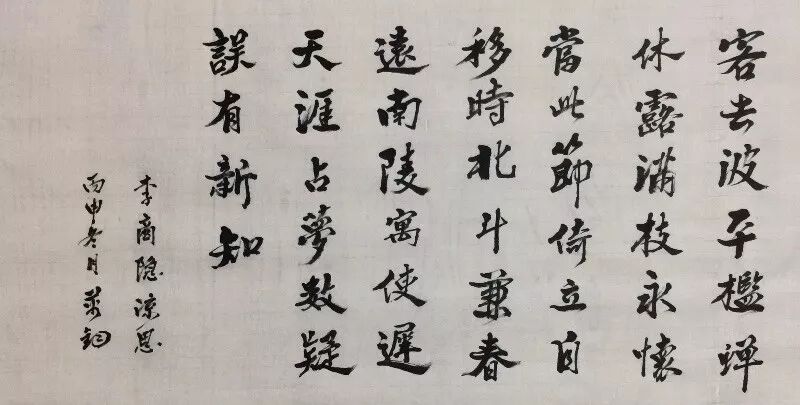 客去波平檻蟬
休露滿枝永懷
當此節倚立自
移時北斗兼春
遠南陵寓使遲
天涯占夢數疑
誤有新知
李商隐涼思
丙申冬月